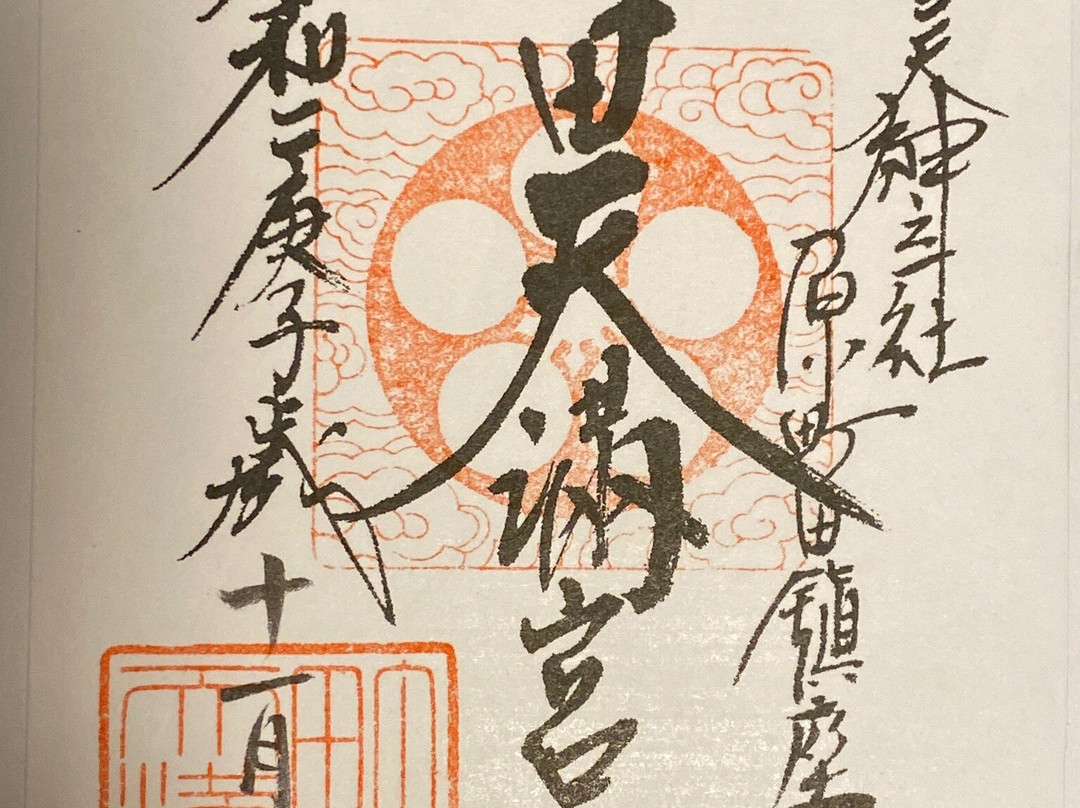 三天神之社
原町田鎮座
田天満宮
和二庚子歳
十一月